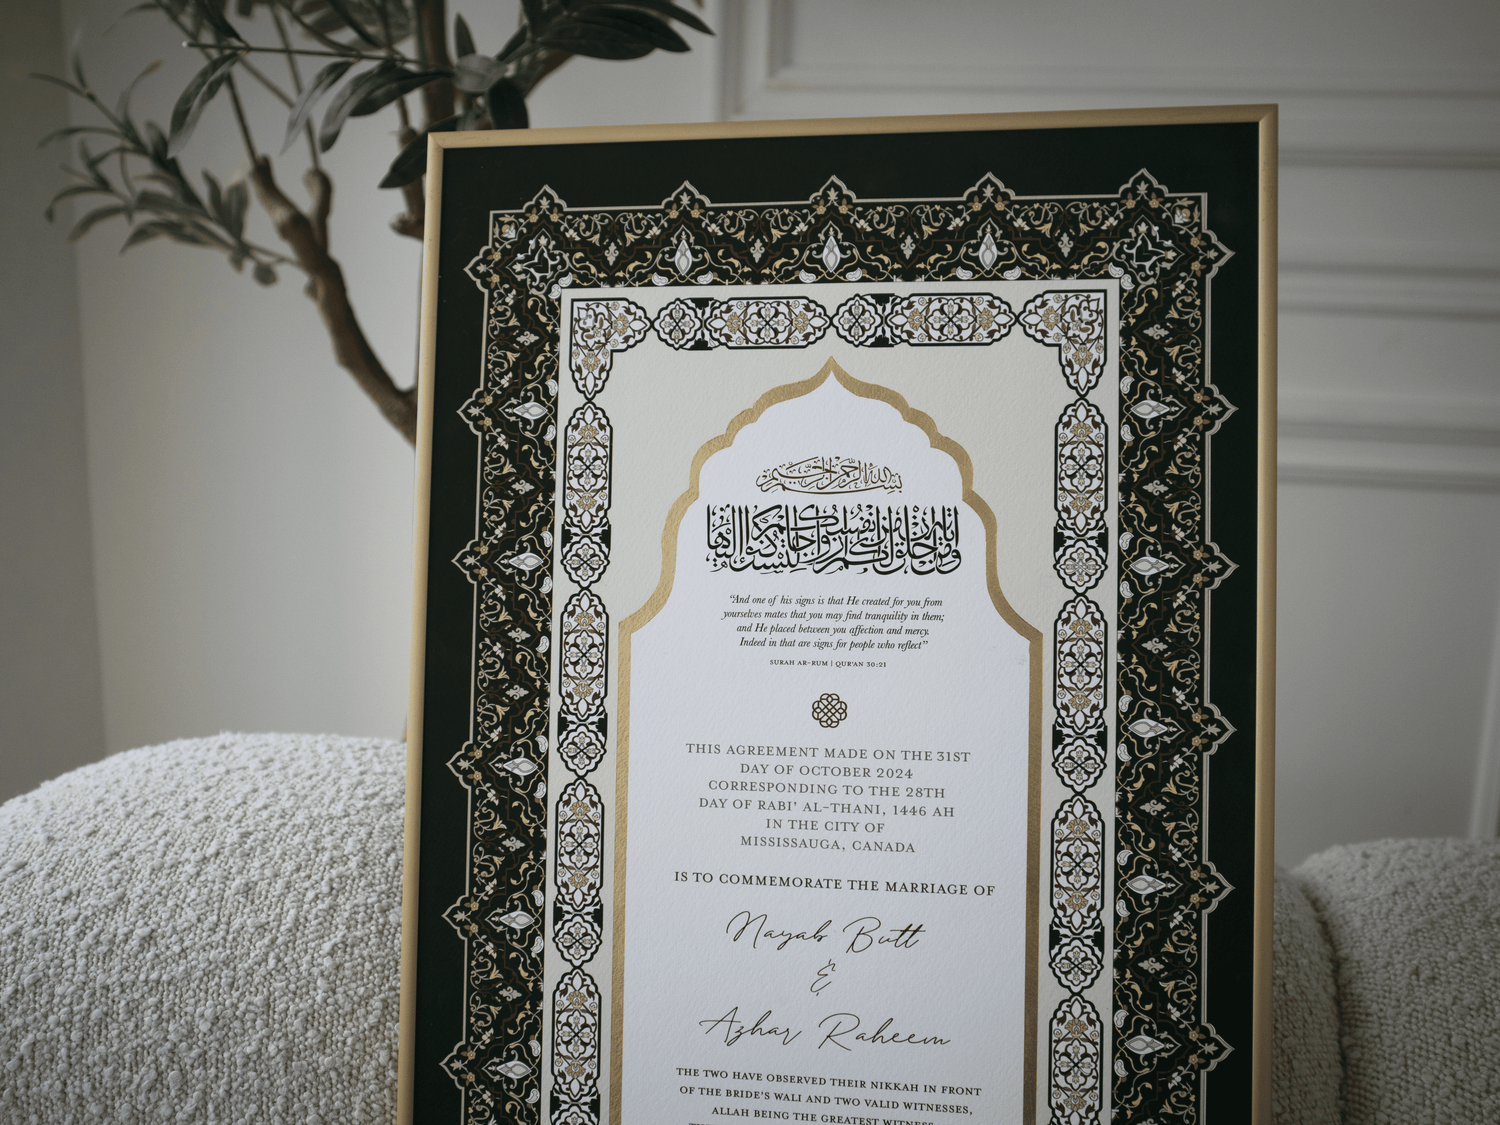 بسم الله الرحمن الرحيم
ومن آياته أن خلق لكم من أنفسكم أزواجا لتسكنوا إليها
“And one of his signs is that He created for you from
yourselves mates that you may find tranquility in them;
and He placed between you affection and mercy.
Indeed in that are signs for people who reflect”
SURAH AR-RUM | QUR'AN 30:21
THIS AGREEMENT MADE ON THE 31ST
DAY OF OCTOBER 2024
CORRESPONDING TO THE 28TH
DAY OF RABI' AL-THANI, 1446 AH
IN THE CITY OF
MISSISSAUGA, CANADA
IS TO COMMEMORATE THE MARRIAGE OF
Nayab Butt
&
Azhar Raheem
THE TWO HAVE OBSERVED THEIR NIKKAH IN FRONT
OF THE BRIDE'S WALI AND TWO VALID WITNESSES,
ALLAH BEING THE GREATEST WITNESS